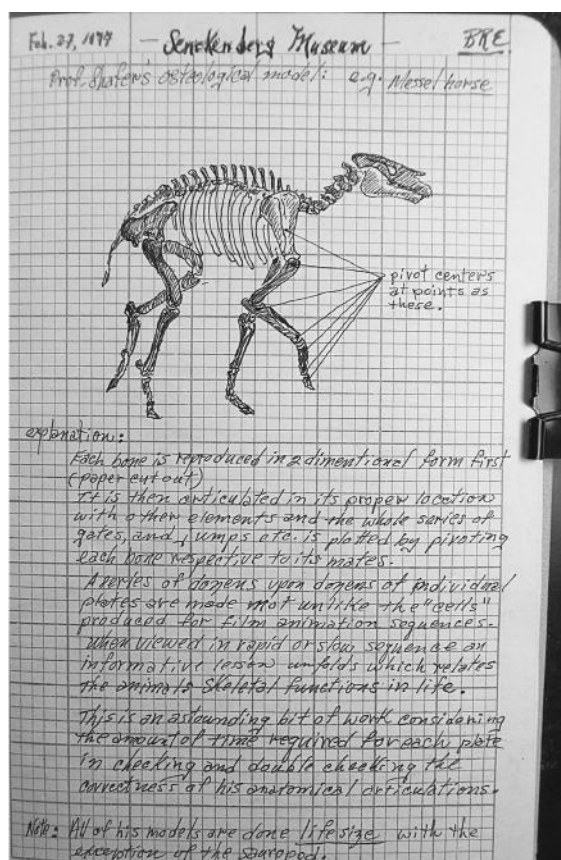 Feb. 27, 1977 — Senckenberg Museum — BRE.
Prof. Shafer's osteological model: e.g. Messel horse
pivot centers
at points as
these.
explanation:
Each bone is reproduced in 2 dimentional form first
(paper cut out)
It is then articulated in its proper location
with other elements and the whole series of
gates, and jumps etc. is plotted by pivoting
each bone respective to its mates.
A series of dozens upon dozens of individual
plates are made not unlike the "cells"
produced for film animation sequences.
When viewed in rapid or slow sequence an
informative lesson unfolds which relates
the animals skeletal functions in life.
This is an astounding bit of work considering
the amount of time required for each plate
in checking and double checking the
correctness of his anatomical articulations.
Note: All of his models are done life size with the
exception of the sauropod.